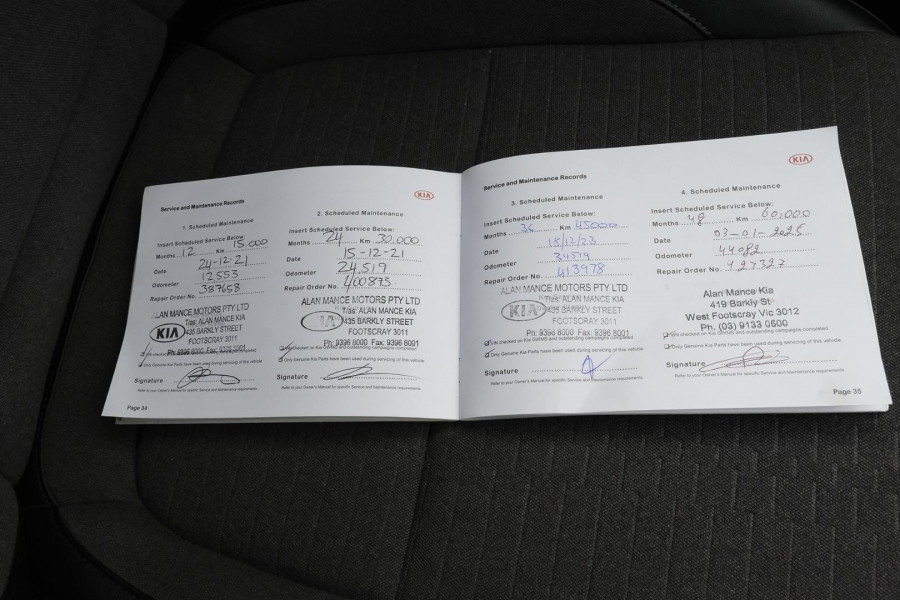 Service and Maintenance Records
KIA
1. Scheduled Maintenance
Insert Scheduled Service Below:
Months 12 Km 15.000
Date 24-12-21
Odometer 12553
Repair Order No. 387658
ALAN MANCE MOTORS PTY LTD
T/as: ALAN MANCE KIA
KIA 435 BARKLY STREET
FOOTSCRAY 3011
Only Genuine Kia Parts have been used during servicing of this vehicle
Signature
Refer to your Owner's Manual for specific Service and Maintenance requirements
Page 34
2. Scheduled Maintenance
Insert Scheduled Service Below:
Months 24 Km 30.000
Date 15-12-21
Odometer 24,519
Repair Order No. 400873
ALAN MANCE MOTORS PTY LTD
T/as: ALAN MANCE KIA
435 BARKLY STREET
FOOTSCRAY 3011
Ph: 9396 8000 Fax: 9396 8001
Only Genuine Kia Parts have been used during servicing of this vehicle
Signature
Refer to your Owner's Manual for specific Service and Maintenance requirements
Service and Maintenance Records
KIA
3. Scheduled Maintenance
Insert Scheduled Service Below:
Months 36 Km 45000
Date 18/12/23
Odometer 34579
Repair Order No. 413978
ALAN MANCE MOTORS PTY LTD
T/as: ALAN MANCE KIA
KIA 435 BARKLY STREET
FOOTSCRAY 3011
Ph: 9396 8000 Fax: 9396 8001
VIN checked on Kia GWMS and outstanding campaigns completed
Only Genuine Kia Parts have been used during servicing of this vehicle
Signature
Refer to your Owner's Manual for specific Service and Maintenance requirements
4. Scheduled Maintenance
Insert Scheduled Service Below:
Months 48 Km 60,000
Date 03-01-2025
Odometer 44082
Repair Order No. 427327
Alan Mance Kia
419 Barkly St
West Footscray Vic 3012
Ph. (03) 9133 0500
VIN checked on Kia GWMS and outstanding campaigns completed
Only Genuine Kia Parts have been used during servicing of this vehicle
Signature
Refer to your Owner's Manual for specific Service and Maintenance requirements
Page 35